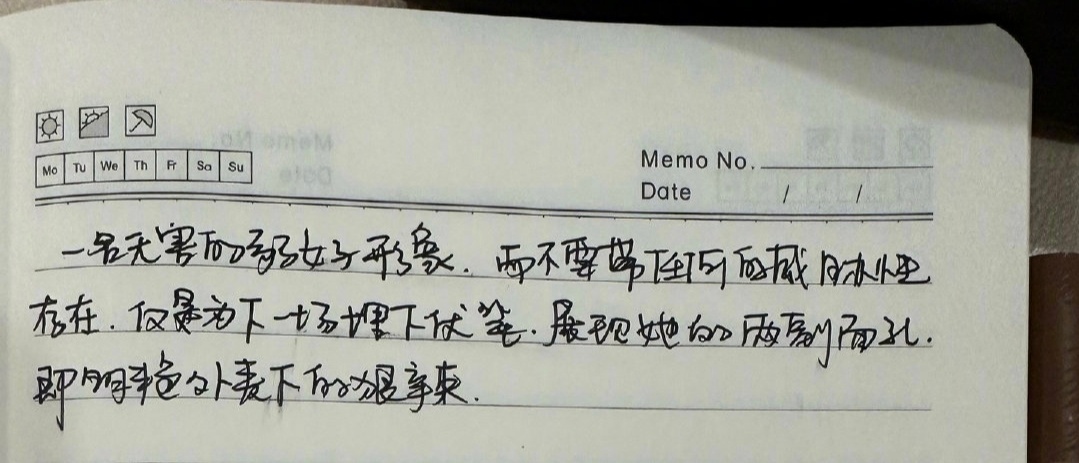 Mo Tu We Th Fr Sa Su
Memo No.
Date / /
一名无害的弱女子形象.而不要带任何的威胁性
存在.仅是为下一场埋下伏笔.展现她的两副面孔.
即明艳外表下的狠辣.